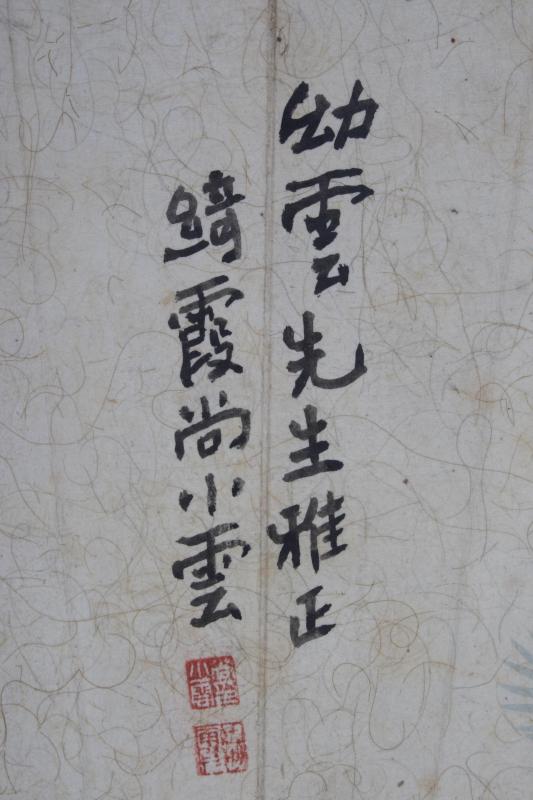 幼雲先生雅正
綺霞尚小雲